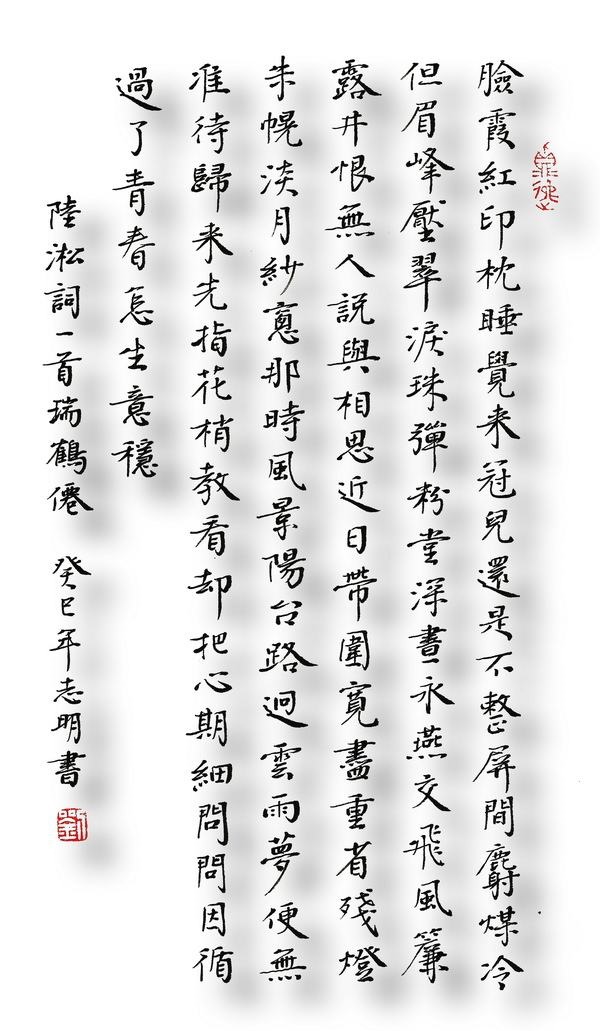 臉霞紅印枕睡覺来冠兒還是不整屏間麝煤冷
但眉峰壓翠淚珠彈粉堂深晝永燕交飛風簾
露井恨無人説與相思近日帶圍寛盡重省殘燈
朱幌淡月紗窻那時風景陽台路迥雲雨夢便無
准待歸来先指花梢教看却把心期細問問因循
過了青春怎生意穩
陸淞詞一首瑞鶴僊 癸巳年志明書
劉